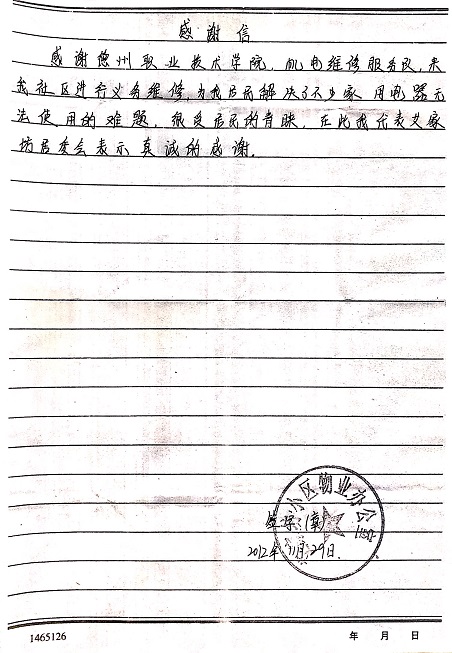 感谢信
感谢德州职业技术学院，机电维修服务队，来
我社区进行义务维修，为我居民解决了不少家用电器无
法使用的难题，很受居民的青睐，在此我代表艾家
坊居委会表示真诚的感谢。
小区物业办公
签章：(章)
2012年11月29日.
1465126 年 月 日